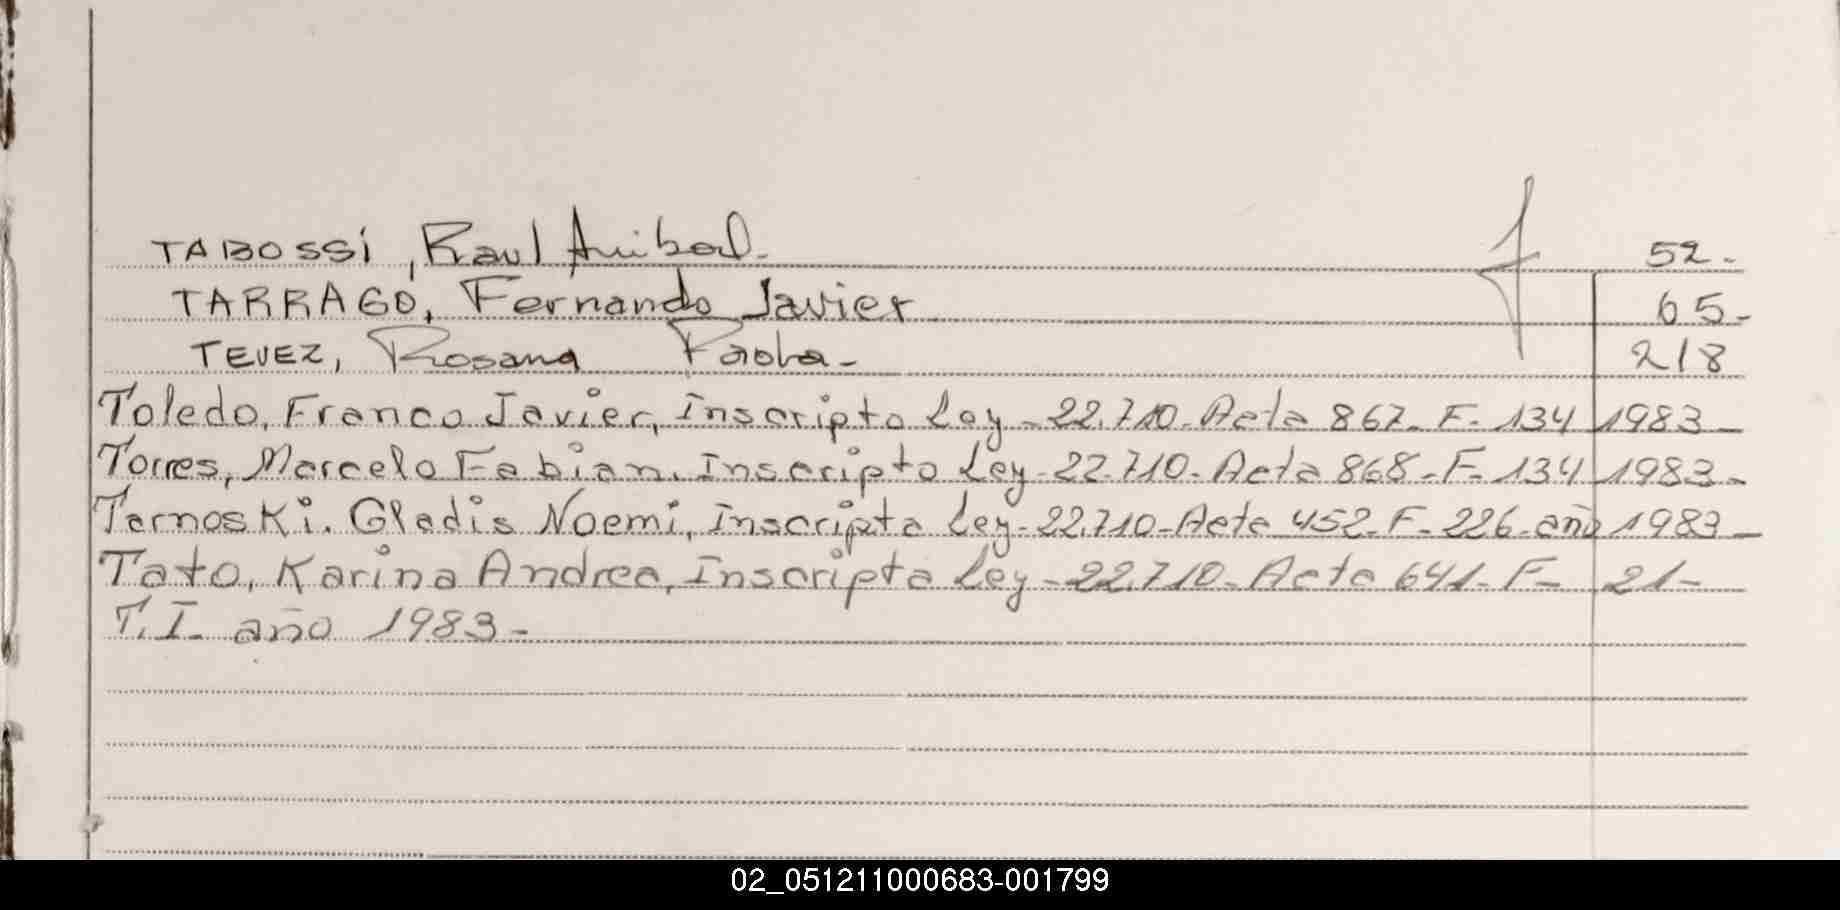 TABOSSI, Raul Anibal. 52.-
TARRAGO, Fernando Javier 65.-
TEVEZ, Rosana Paola- 218
Toledo, Franco Javier, Inscripto Ley-22.710-Acta 867-F-134 1983-
Torres, Marcelo Fabian. Inscripto Ley-22.710-Acta 868-F-134 1983-
Tarnoski. Gladis Noemi, Inscripta Ley-22.710-Acta 452-F-226-año 1983-
Tato, Karina Andrea, Inscripta Ley-22.710-Acta 641-F- 21-
T.I- año 1983-
02_051211000683-001799